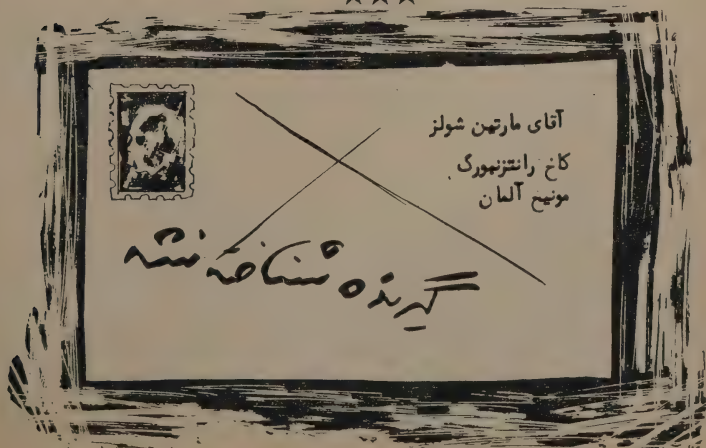 آقای مارتین شولز
کاخ رانتزنبورگ
مونیخ آلمان
گیرنده شناخته نشد